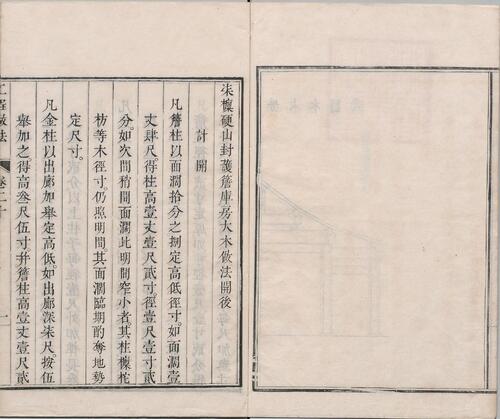 柒檁硬山封護簷庫房大木做法開後
計開
凡簷柱以面濶拾分之捌定高低徑寸如面濶壹
丈肆尺得柱高壹丈壹尺貳寸徑壹尺壹寸貳
分如次間稍間面濶比明間窄小者其柱檁柁
枋等木徑寸仍照明間其面濶臨期酌奪地勢
定尺寸
凡金柱以出廊加舉定高低如出廊深柒尺按伍
舉加之得高叁尺伍寸并簷柱高壹丈壹尺貳
工程做法 卷二十 一